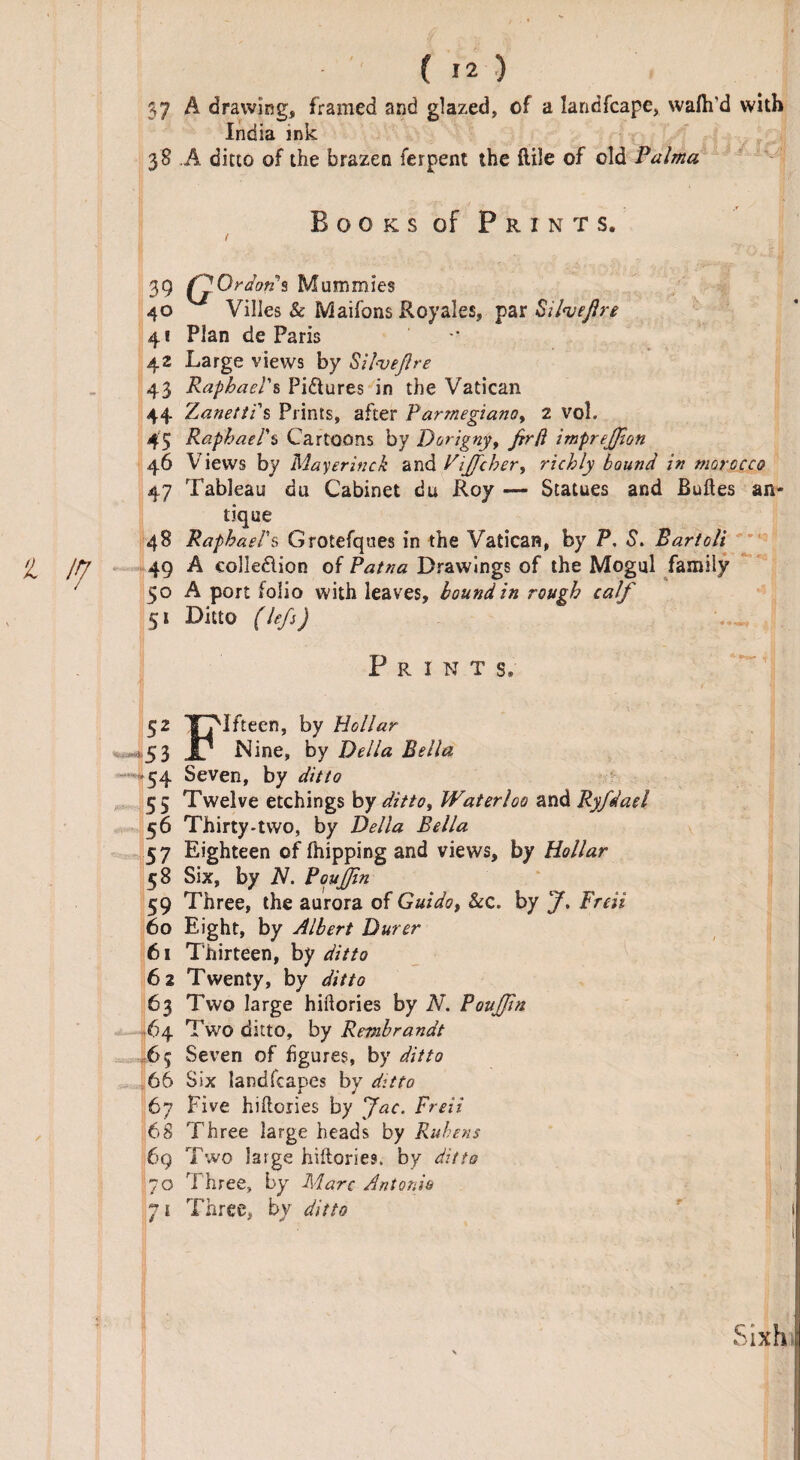 ( 12 )
37 A drawing, framed and glazed, of a landſcape, waſh'd with
India ink
38 A ditto of the brazen ſerpent the ſtile of old Palma
Books of Prints.
39 GOrdon's Mummies
40 Villes & Maiſons Royales, par Silveſtre
41 Plan de Paris
42 Large views by Silveſtre
43 Raphael's Pictures in the Vatican
44 Zanetti's Prints, after Parmegiano, 2 vol.
45 Raphael's Cartoons by Dorigny, firſt impreſſion
46 Views by Mayerinck and Viſſcher, richly bound in morocco
47 Tableau du Cabinet du Roy — Statues and Buſtes an-
tique
48 Raphael's Groteſques in the Vatican, by P. S. Bartoli
49 A collection of Patna Drawings of the Mogul family
50 A port folio with leaves, bound in rough calf
51 Ditto (leſs)
Prints.
52 FIfteen, by Hollar
53 Nine, by Della Bella
54 Seven, by ditto
55 Twelve etchings by ditto, Waterloo and Ryſdael
56 Thirty-two, by Della Bella
57 Eighteen of ſhipping and views, by Hollar
58 Six, by N. Pouſſin
59 Three, the aurora of Guido, &c. by J. Freii
60 Eight, by Albert Durer
61 Thirteen, by ditto
62 Twenty, by ditto
63 Two large hiſtories by N. Pouſſin
64 Two ditto, by Rembrandt
65 Seven of figures, by ditto
66 Six landſcapes by ditto
67 Five hiſtories by Jac. Freii
68 Three large heads by Rubens
69 Two large hiſtories. by ditto
70 Three, by Marc Antonio
71 Three, by ditto
Sixh